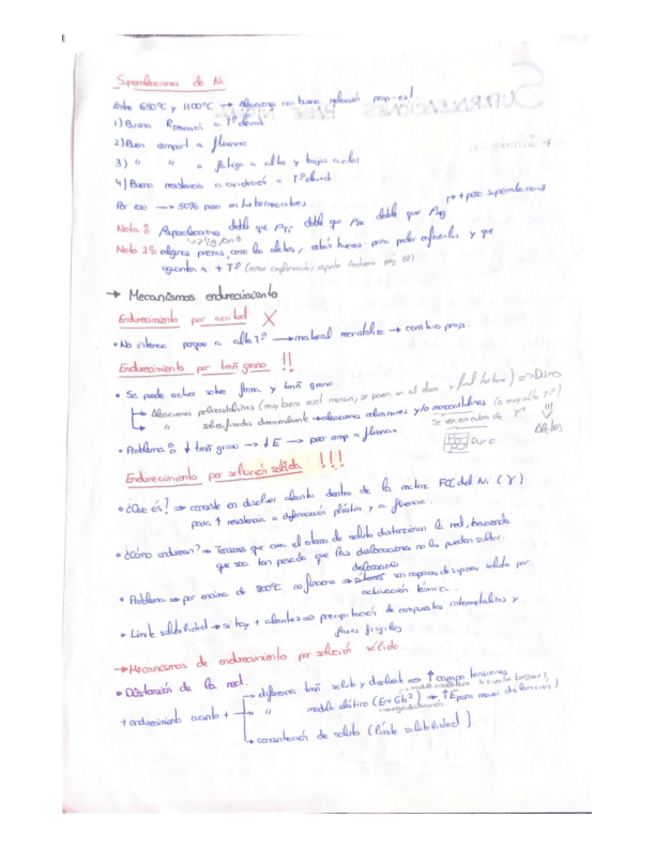 Superaleaciones de Ni
Entre 650°C y 1100°C → Aleaciones con buena relación prop-cost.
1) Buena Rmecánica a Tª elevada
2) Buen comport a fluencia
3) " " a fatiga a altos y bajos ciclos
4) Buena resistencia a oxidación a Tª elevada
Por eso → 50% peso en
Nota: Superaleaciones doble que ρTi doble que doble que ρMg → + peso superaleaciones
Nota 2: algunas piezas, como los álabes, están huecas para poder enfriarlas y que
aguanten a + Tª (mejor explicación, apunte pág
→ Mecanismos endurecimiento
Endurecimiento por acritud X
• No interesa porque a alta Tª → material recristaliza → cambia prop.
Endurecimiento por tmñ grano !!
• Se puede actuar sobre forma y tmñ grano.
→ Aleaciones policristalinas (muy buena resist. mecan, se ponen en el disco y final turbina) => Disco
→ " solidificadas direccionalmente → aleaciones columnares y/o monocristalinas (a muy alta Tª)
Se ven en cubos de γ' Álabes
Disco
• Problema: ↓ tmñ grano → ↓ E → peor comp a fluencia.
Endurecimiento por solución sólida !!!
• ¿Qué es? → consiste en disolver aleantes dentro de la matriz FCC del Ni (γ)
para ↑ resistencia a deformación plástica y a fluencia.
• ¿Cómo endurecen? → Tensiones que crea el átomo de soluto distorsionan la red, haciendo
que sea tan pesada que las dislocaciones no la puedan saltar.
dislocaciones
• Problema → por encima de 800°C no funciona → son capaces de superar soluto por
activación térmica.
• Límite solubilidad → si hay + aleantes => precipitación de compuestos intermetálicos y
fases frágiles
→ Mecanismos de endurecimiento por solución sólida.
• Distorsión de la red.
+ endurecimiento cuanto +
→ diferencia tmñ soluto y disolvente => ↑ campo tensiones
→ " módulo elástico (E∝Gb²) → ↑E para mover dislocación)
→ concentración de soluto (límite solubilidad)